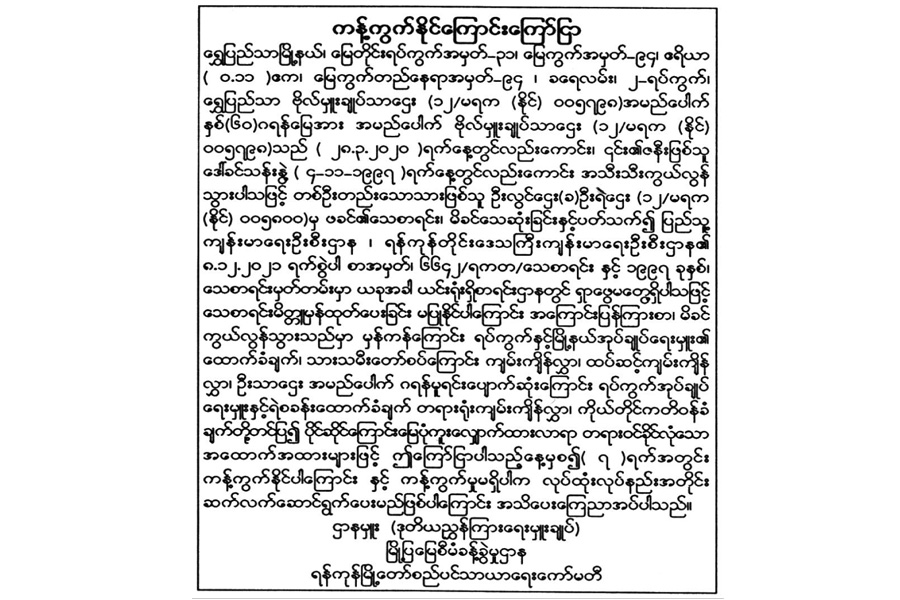 ကန့်ကွက်နိုင်ကြောင်းကြော်ငြာ
ရွှေပြည်သာမြို့နယ်၊ မြေတိုင်းရပ်ကွက်အမှတ်-၃၁၊ မြေကွက်အမှတ်-၉၄၊ ဧရိယာ
( ၀.၁၁ )ဧက၊ မြေကွက်တည်နေရာအမှတ်-၉၄ ၊ ခရေလမ်း၊ ၂-ရပ်ကွက်၊
ရွှေပြည်သာ ဗိုလ်မှူးချုပ်သာဌေး (၁၂/မရက (နိုင်) ၀၀၅၇၉၈)အမည်ပေါက်
နှစ်(၆၀)ဂရန်မြေအား အမည်ပေါက် ဗိုလ်မှူးချုပ်သာဌေး (၁၂/မရက (နိုင်)
၀၀၅၇၉၈)သည် ( ၂၈.၃.၂၀၂၀ )ရက်နေ့တွင်လည်းကောင်း၊ ၎င်း၏ဇနီးဖြစ်သူ
ဒေါ်ခင်သန်းနွဲ့ ( ၄-၁၁-၁၉၉၇ )ရက်နေ့တွင်လည်းကောင်း အသီးသီးကွယ်လွန်
သွားပါသဖြင့် တစ်ဦးတည်းသောသားဖြစ်သူ ဦးလွင်ဌေး(ခ)ဦးရဲဌေး (၁၂/မရက
(နိုင်) ၀၀၅၈၀၀)မှ ဖခင်၏သေစာရင်း၊ မိခင်သေဆုံးခြင်းနှင့်ပတ်သက်၍ ပြည်သူ့
ကျန်းမာရေးဦးစီးဌာန ၊ ရန်ကုန်တိုင်းဒေသကြီးကျန်းမာရေးဦးစီးဌာန၏
၈.၁၂.၂၀၂၁ ရက်စွဲပါ စာအမှတ်၊ ၆၆၄၂/ရကတ/သေစာရင်း နှင့် ၁၉၉၇ ခုနှစ်၊
သေစာရင်းမှတ်တမ်းမှာ ယခုအခါ ယင်းရုံးရှိစာရင်းဌာနတွင် ရှာဖွေမတွေ့ရှိပါသဖြင့်
သေစာရင်းမိတ္တူမှန်ထုတ်ပေးခြင်း မပြုနိုင်ပါကြောင်း အကြောင်းပြန်ကြားစာ၊ မိခင်
ကွယ်လွန်သွားသည်မှာ မှန်ကန်ကြောင်း ရပ်ကွက်နှင့်မြို့နယ်အုပ်ချုပ်ရေးမှူး၏
ထောက်ခံချက်၊ သားသမီးတော်စပ်ကြောင်း ကျမ်းကျိန်လွှာ၊ ထပ်ဆင့်ကျမ်းကျိန်
လွှာ၊ ဦးသာဌေး အမည်ပေါက် ဂရန်မူရင်းပျောက်ဆုံးကြောင်း ရပ်ကွက်အုပ်ချုပ်
ရေးမှူးနှင့်ရဲစခန်းထောက်ခံချက် တရားရုံးကျမ်းကျိန်လွှာ၊ ကိုယ်တိုင်ကတိဝန်ခံ
ချက်တို့တင်ပြ၍ ပိုင်ဆိုင်ကြောင်းမြေပုံကူးလျှောက်ထားလာရာ တရားဝင်ခိုင်လုံသော
အထောက်အထားများဖြင့် ဤကြော်ငြာပါသည့်နေ့မှစ၍( ၇ )ရက်အတွင်း
ကန့်ကွက်နိုင်ပါကြောင်း နှင့် ကန့်ကွက်မှုမရှိပါက လုပ်ထုံးလုပ်နည်းအတိုင်း
ဆက်လက်ဆောင်ရွက်ပေးမည်ဖြစ်ပါကြောင်း အသိပေးကြေညာအပ်ပါသည်။
ဌာနမှူး (ဒုတိယညွှန်ကြားရေးမှူးချုပ်)
မြို့ပြမြေစီမံခန့်ခွဲမှုဌာန
ရန်ကုန်မြို့တော်စည်ပင်သာယာရေးကော်မတီ